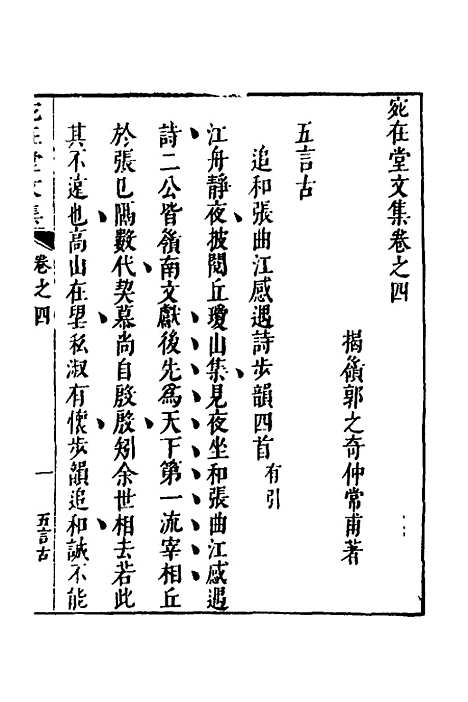 宛在堂文集卷之四
揭嶺郭之奇仲常甫著
五言古
追和張曲江感遇詩步韻四首有引
江舟靜夜披閱丘瓊山集見夜坐和張曲江感遇
詩二公皆嶺南文獻後先爲天下第一流宰相丘
於張已隔數代契慕尚自殷殷矧余世相去若此
其不遠也高山在望私淑有懷步韻追和誠不能
宛在堂文集
卷之四
一
五言古